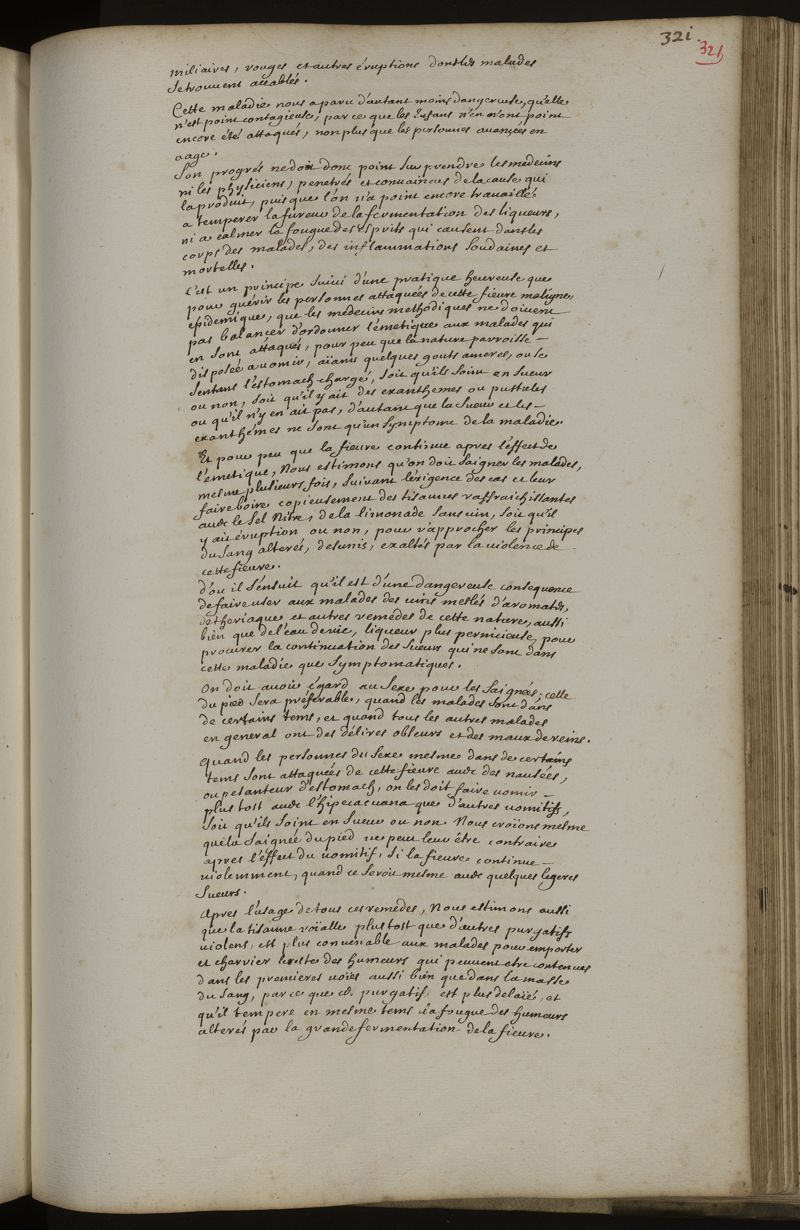 321.
321
miliaires, rouges et autres éruptions dont les malades
se trouvent accablés.
Cette maladie nous a paru d'autant moins dangereuse, qu'elle
n'est point contagieuse, par ce que les Enfans n'en n'ont point
encore été attaqués, non plus que les personnes avancées en
aage.
Son progrés ne doit donc point surprendre les medecins
ni les physiciens, penetrés et convaincus de la cause qui
la produit, puis que l'on n'a point encore travaillé
a temperer la fureur de la fermentation des liqueurs,
ni a calmer la fougue des Esprits qui causent dans les
corps des malades, des inflammations soudaines et
mortelles.
C'est un principe suivi d'une pratique heureuse que
pour guérir les personnes attaquées de cette fievre maligne,
epidemique, que les medecins methodiques ne doivent
pas balancer d'ordonner l'émetique aux malades qui
en sont attaqués, pour peu que la nature parroisse –
disposée a vomir, aïans quelques gouts ameres, ou se
sentans l'estomach chargé, soit qu'ils soint en sueur
ou non, soit qu'il y ait des exanthemes ou pustules
ou qu'il n'y en ait pas, d'autant que la sueur et les –
exanthémes ne sont qu'un symptome de la maladie.
Et pour peu que la fievre continue apres l'effet de
l'émetique, Nous estimons qu'on doit saigner les malades,
mesme plusieurs fois, suivant l'éxigence des cas et leur
faire boire copieusement des tisannes raffraichissantes
avec le sel Nitre, de la limonade sans vin, soit qu'il
y ait éruption ou non, pour rapprocher les principes
du sang alterés, desunis, exaltés par la violence de
cette fievre.
d'ou il s'ensuit qu'il est d'une dangereuse consequence
de faire user aux malades des vins meslés d'aromates,
de theriaque et autres remedes de cette nature, aussi
bien que de l'eau de vie, liqueur plus pernicieuse, pour
procurer la continuation des sueurs qui ne sont dans
cette maladie que symptomatiques.
On doit avoir égard au sexe pour les saignées; celle
du pied sera préferable, quand les malades sont dans
de certains tems, et quand tous les autres malades
en general ont des délires obscurs et des maux de reins.
Quand les personnes du sexe mesme dans de certains
tems sont attaquées de cette fievre avec des nausées,
ou pesanteur d'estomach, on les doit faire vomir –
plus tost avec l'hipecacuana que d'autres vomitifs,
soit qu'ils soint en sueur ou non. Nous croions mesme
que la saignée du pied ne peut leur étre contraire
apres l'effet du vomitif, si la fievre continue –
violemment, quand ce seroit mesme avec quelques legeres
sueurs.
Apres l'usage de tous ces remedes, Nous estimons aussi
que la tisanne roïalle plus tost que d'autres purgatifs
violens, est plus convenable aux malades pour emporter
et charrier le reste des humeurs qui peuvent etre contenues
dans les premieres voies aussi bien que dans la masse
du sang, par ce que ce purgatif est plus delaïé, et
qu'il tempere en mesme tems la fougue des humeurs
alterés par la grande fermentation de la fievre.